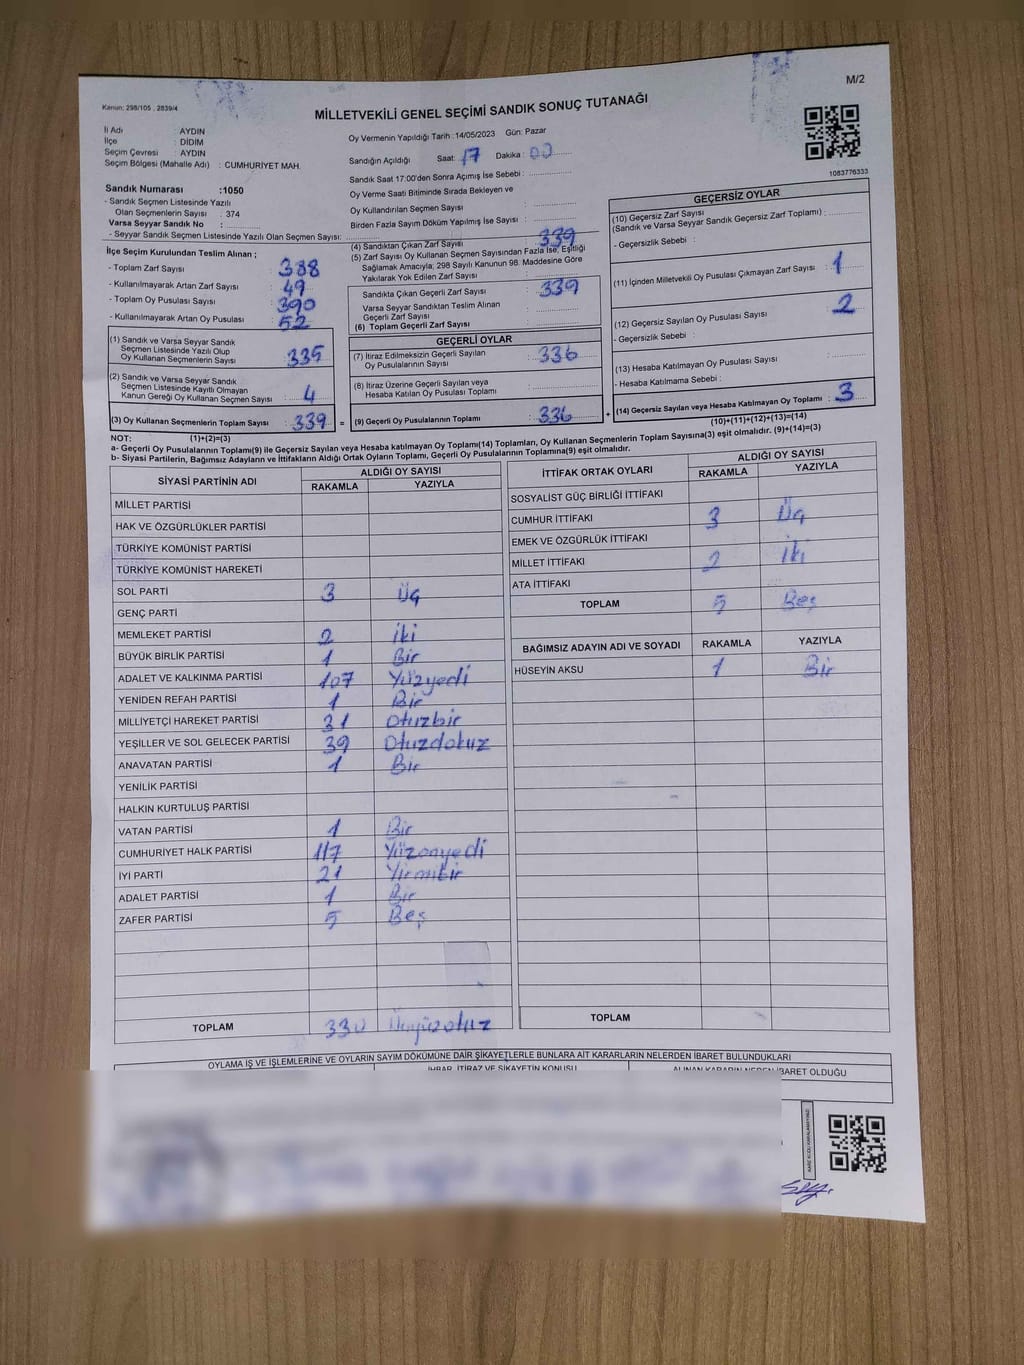 M/2
Kanun: 298/105 , 2839/4
MİLLETVEKİLİ GENEL SEÇİMİ SANDIK SONUÇ TUTANAĞI
İl Adı : AYDIN
İlçe : DİDİM
Seçim Çevresi : AYDIN
Seçim Bölgesi (Mahalle Adı) : CUMHURİYET MAH.
Sandık Numarası :1050
- Sandık Seçmen Listesinde Yazılı
Olan Seçmenlerin Sayısı : 374
Varsa Seyyar Sandık No :
- Seyyar Sandık Seçmen Listesinde Yazılı Olan Seçmen Sayısı:
Oy Vermenin Yapıldığı Tarih : 14/05/2023 Gün: Pazar
Sandığın Açıldığı Saat: 17 Dakika : 00
Sandık Saat 17:00'den Sonra Açımış İse Sebebi :
Oy Verme Saati Bitiminde Sırada Bekleyen ve
Oy Kullandırılan Seçmen Sayısı :
Birden Fazla Sayım Döküm Yapılmış İse Sayısı :
1083776333
İlçe Seçim Kurulundan Teslim Alınan ;
- Toplam Zarf Sayısı : 388
- Kullanılmayarak Artan Zarf Sayısı : 49
- Toplam Oy Pusulası Sayısı : 390
- Kullanılmayarak Artan Oy Pusulası : 52
(1) Sandık ve Varsa Seyyar Sandık
Seçmen Listesinde Yazılı Olup
Oy Kullanan Seçmenlerin Sayısı : 335
(2) Sandık ve Varsa Seyyar Sandık
Seçmen Listesinde Kayıtlı Olmayan
Kanun Gereği Oy Kullanan Seçmen Sayısı : 4
(3) Oy Kullanan Seçmenlerin Toplam Sayısı : 339
(1)+(2)=(3)
(4) Sandıktan Çıkan Zarf Sayısı : 339
(5) Zarf Sayısı Oy Kullanan Seçmen Sayısından Fazla İse, Eşitliği
Sağlamak Amacıyla, 298 Sayılı Kanunun 98. Maddesine Göre
Yakılarak Yok Edilen Zarf Sayısı :
Sandıkta Çıkan Geçerli Zarf Sayısı : 339
Varsa Seyyar Sandıktan Teslim Alınan
Geçerli Zarf Sayısı :
(6) Toplam Geçerli Zarf Sayısı :
GEÇERLİ OYLAR
(7) İtiraz Edilmeksizin Geçerli Sayılan
Oy Pusulalarının Sayısı : 336
(8) İtiraz Üzerine Geçerli Sayılan veya
Hesaba Katılan Oy Pusulası Toplamı :
= (9) Geçerli Oy Pusulalarının Toplamı : 336
GEÇERSİZ OYLAR
(10) Geçersiz Zarf Sayısı
(Sandık ve Varsa Seyyar Sandık Geçersiz Zarf Toplamı) :
- Geçersizlik Sebebi :
(11) İçinden Milletvekili Oy Pusulası Çıkmayan Zarf Sayısı : 1
(12) Geçersiz Sayılan Oy Pusulası Sayısı : 2
- Geçersizlik Sebebi :
(13) Hesaba Katılmayan Oy Pusulası Sayısı :
- Hesaba Katılmama Sebebi :
+ (14) Geçersiz Sayılan veya Hesaba Katılmayan Oy Toplamı : 3
(10)+(11)+(12)+(13)=(14)
NOT:
a- Geçerli Oy Pusulalarının Toplamı(9) ile Geçersiz Sayılan veya Hesaba katılmayan Oy Toplamı(14) Toplamları, Oy Kullanan Seçmenlerin Toplam Sayısına(3) eşit olmalıdır. (9)+(14)=(3)
b- Siyasi Partilerin, Bağımsız Adayların ve İttifakların Aldığı Ortak Oyların Toplamı, Geçerli Oy Pusulalarının Toplamına(9) eşit olmalıdır.
SİYASİ PARTİNİN ADI ALDIĞI OY SAYISI
RAKAMLA YAZIYLA
MİLLET PARTİSİ
HAK VE ÖZGÜRLÜKLER PARTİSİ
TÜRKİYE KOMÜNİST PARTİSİ
TÜRKİYE KOMÜNİST HAREKETİ
SOL PARTİ 3 Üç
GENÇ PARTİ
MEMLEKET PARTİSİ 2 iki
BÜYÜK BİRLİK PARTİSİ 1 Bir
ADALET VE KALKINMA PARTİSİ 107 Yüzyedi
YENİDEN REFAH PARTİSİ 1 Bir
MİLLİYETÇİ HAREKET PARTİSİ 31 otuzbir
YEŞİLLER VE SOL GELECEK PARTİSİ 39 Otuzdokuz
ANAVATAN PARTİSİ 1 Bir
YENİLİK PARTİSİ
HALKIN KURTULUŞ PARTİSİ
VATAN PARTİSİ 1 Bir
CUMHURİYET HALK PARTİSİ 117 Yüzonyedi
İYİ PARTİ 21 Yirmibir
ADALET PARTİSİ 1 Bir
ZAFER PARTİSİ 5 Beş
TOPLAM 330 Üçyüzotuz
İTTİFAK ORTAK OYLARI ALDIĞI OY SAYISI
RAKAMLA YAZIYLA
SOSYALİST GÜÇ BİRLİĞİ İTTİFAKI
CUMHUR İTTİFAKI 3 Üç
EMEK VE ÖZGÜRLÜK İTTİFAKI
MİLLET İTTİFAKI 2 iki
ATA İTTİFAKI
TOPLAM 5 Beş
BAĞIMSIZ ADAYIN ADI VE SOYADI RAKAMLA YAZIYLA
HÜSEYİN AKSU 1 Bir
TOPLAM
OYLAMA İŞ VE İŞLEMLERİNE VE OYLARIN SAYIM DÖKÜMÜNE DAİR ŞİKAYETLERLE BUNLARA AİT KARARLARIN NELERDEN İBARET BULUNDUKLARI
İHBAR, İTİRAZ VE ŞİKAYETİN KONUSU ALINAN KARARIN NEDEN İBARET OLDUĞU
KARE KODU KARALAMAYINIZ